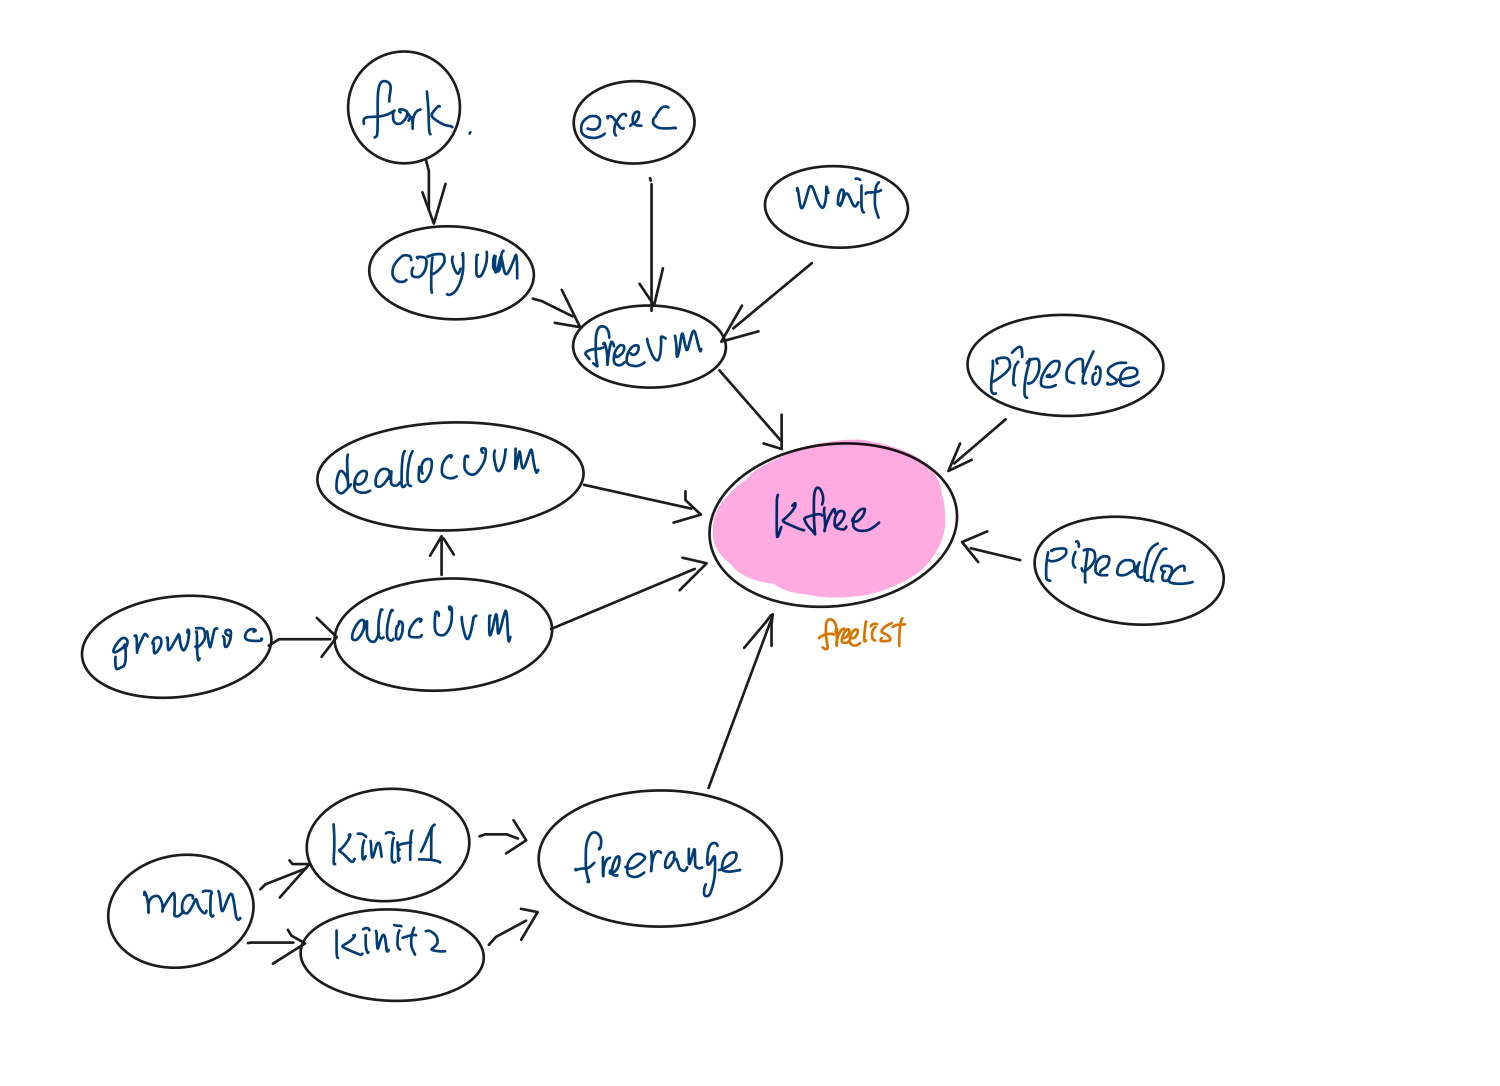 fork.
exec
wait
copyuvm
freevm
pipeclose
deallocuvm
kfree
pipealloc
growproc
allocuvm
freelist
kinit1
freerange
main
kinit2